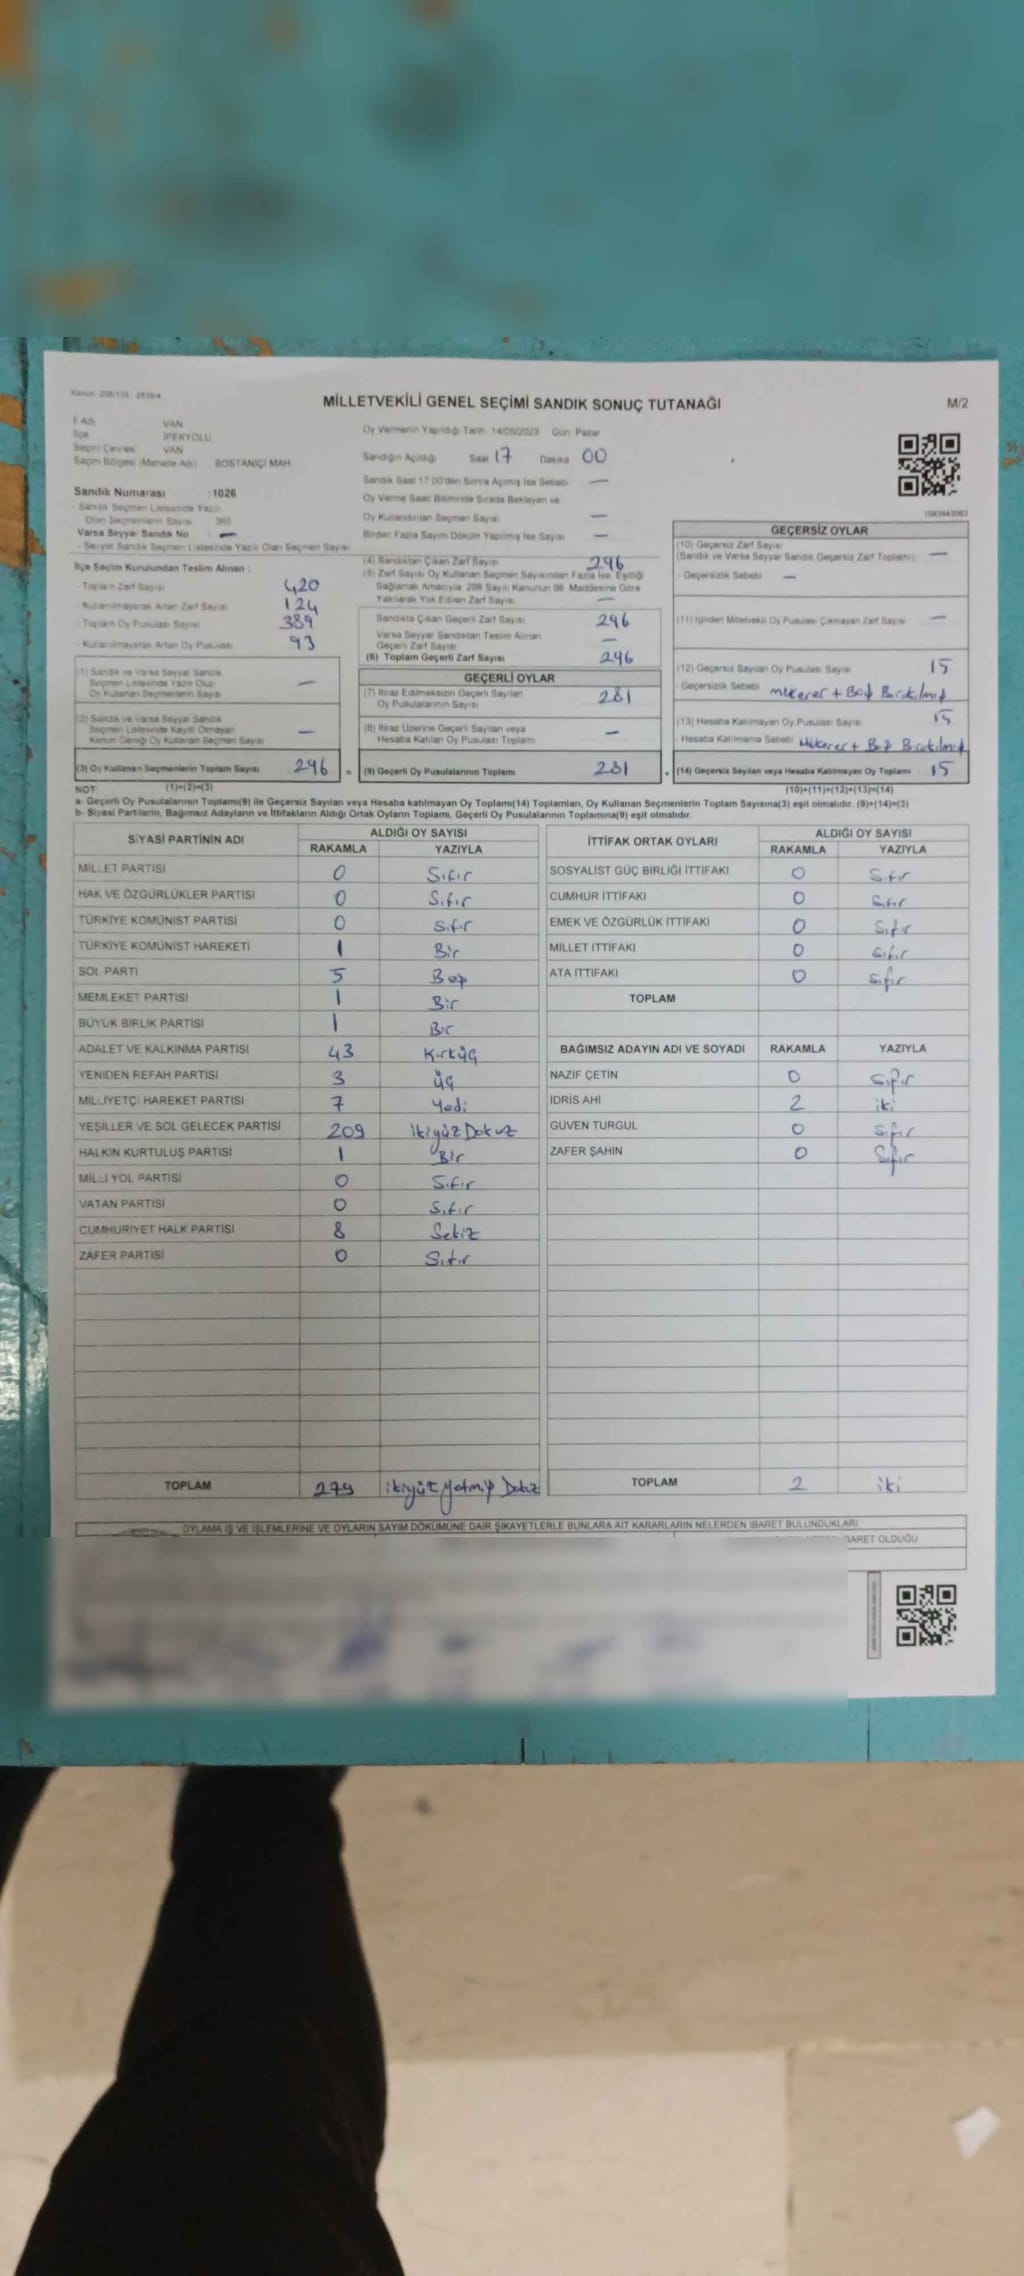 MİLLETVEKİLİ GENEL SEÇİMİ SANDIK SONUÇ TUTANAĞI
M/2
İl Adı VAN
İlçe İPEKYOLU
Seçim Çevresi VAN
Seçim Bölgesi (Mahalle Adı) BOSTANİÇİ MAH
Sandık Numarası :1026
- Sandık Seçmen Listesinde Yazılı
Olan Seçmenlerin Sayısı 365
Varsa Seyyar Sandık No —
- Seyyar Sandık Seçmen Listesinde Yazılı Olan Seçmen Sayısı
İlçe Seçim Kurulundan Teslim Alınan :
- Toplam Zarf Sayısı 420
- Kullanılmayarak Artan Zarf Sayısı 124
- Toplam Oy Pusulası Sayısı 389
- Kullanılmayarak Artan Oy Pusulası 93
(1) Sandık ve Varsa Seyyar Sandık
Seçmen Listesinde Yazılı Olup
Oy Kullanan Seçmenlerin Sayısı —
(2) Sandık ve Varsa Seyyar Sandık
Seçmen Listesinde Kayıtlı Olmayan
Kanun Gereği Oy Kullanan Seçmen Sayısı —
(3) Oy Kullanan Seçmenlerin Toplam Sayısı 296
Oy Vermenin Yapıldığı Tarih 14/05/2023 Gün Pazar
Sandığın Açıldığı Saat 17 Dakika 00
Sandık Saat 17:00'den Sonra Açılmış İse Sebebi —
Oy Verme Saati Bitiminde Sırada Bekleyen ve
Oy Kullandırılan Seçmen Sayısı —
Birden Fazla Sayım Döküm Yapılmış İse Sayısı —
(4) Sandıktan Çıkan Zarf Sayısı 296
(5) Zarf Sayısı Oy Kullanan Seçmen Sayısından Fazla İse, Eşitliği
Sağlamak Amacıyla, 298 Sayılı Kanunun 98. Maddesine Göre
Yakılarak Yok Edilen Zarf Sayısı —
Sandıkta Çıkan Geçerli Zarf Sayısı 296
Varsa Seyyar Sandıktan Teslim Alınan
Geçerli Zarf Sayısı —
(6) Toplam Geçerli Zarf Sayısı 296
GEÇERLİ OYLAR
(7) İtiraz Edilmeksizin Geçerli Sayılan
Oy Pusulalarının Sayısı 281
(8) İtiraz Üzerine Geçerli Sayılan veya
Hesaba Katılan Oy Pusulası Toplamı —
= (9) Geçerli Oy Pusulalarının Toplamı 281
GEÇERSİZ OYLAR
(10) Geçersiz Zarf Sayısı
(Sandık ve Varsa Seyyar Sandık Geçersiz Zarf Toplamı) —
- Geçersizlik Sebebi —
(11) İçinden Milletvekili Oy Pusulası Çıkmayan Zarf Sayısı —
(12) Geçersiz Sayılan Oy Pusulası Sayısı 15
- Geçersizlik Sebebi mükerer + Boş Bırakılmış
(13) Hesaba Katılmayan Oy Pusulası Sayısı 15
- Hesaba Katılmama Sebebi Mükerer + Boş Bırakılmış
(14) Geçersiz Sayılan veya Hesaba Katılmayan Oy Toplamı 15
NOT: (1)+(2)=(3)
(10)+(11)+(12)+(13)=(14)
a- Geçerli Oy Pusulalarının Toplamı(9) ile Geçersiz Sayılan veya Hesaba katılmayan Oy Toplamı(14) Toplamları, Oy Kullanan Seçmenlerin Toplam Sayısına(3) eşit olmalıdır. (9)+(14)=(3)
b- Siyasi Partilerin, Bağımsız Adayların ve İttifakların Aldığı Ortak Oyların Toplamı, Geçerli Oy Pusulalarının Toplamına(9) eşit olmalıdır.
SİYASİ PARTİNİN ADI ALDIĞI OY SAYISI
RAKAMLA YAZIYLA
MİLLET PARTİSİ 0 Sıfır
HAK VE ÖZGÜRLÜKLER PARTİSİ 0 Sıfır
TÜRKİYE KOMÜNİST PARTİSİ 0 Sıfır
TÜRKİYE KOMÜNİST HAREKETİ 1 Bir
SOL PARTİ 5 Beş
MEMLEKET PARTİSİ 1 Bir
BÜYÜK BİRLİK PARTİSİ 1 Bir
ADALET VE KALKINMA PARTİSİ 43 Kırküç
YENİDEN REFAH PARTİSİ 3 üç
MİLLİYETÇİ HAREKET PARTİSİ 7 Yedi
YEŞİLLER VE SOL GELECEK PARTİSİ 209 ikiyüz Dokuz
HALKIN KURTULUŞ PARTİSİ 1 Bir
MİLLİ YOL PARTİSİ 0 Sıfır
VATAN PARTİSİ 0 Sıfır
CUMHURİYET HALK PARTİSİ 8 Sekiz
ZAFER PARTİSİ 0 Sıfır
TOPLAM 279 ikiyüz Yetmiş Dokuz
İTTİFAK ORTAK OYLARI ALDIĞI OY SAYISI
RAKAMLA YAZIYLA
SOSYALİST GÜÇ BİRLİĞİ İTTİFAKI 0 Sıfır
CUMHUR İTTİFAKI 0 Sıfır
EMEK VE ÖZGÜRLÜK İTTİFAKI 0 Sıfır
MİLLET İTTİFAKI 0 Sıfır
ATA İTTİFAKI 0 Sıfır
TOPLAM
BAĞIMSIZ ADAYIN ADI VE SOYADI RAKAMLA YAZIYLA
NAZİF ÇETİN 0 Sıfır
İDRİS AHİ 2 iki
GÜVEN TURGUL 0 Sıfır
ZAFER ŞAHİN 0 Sıfır
TOPLAM 2 iki
OYLAMA İŞ VE İŞLEMLERİNE VE OYLARIN SAYIM DÖKÜMÜNE DAİR ŞİKAYETLERLE BUNLARA AİT KARARLARIN NELERDEN İBARET BULUNDUKLARI
İBARET OLDUĞU